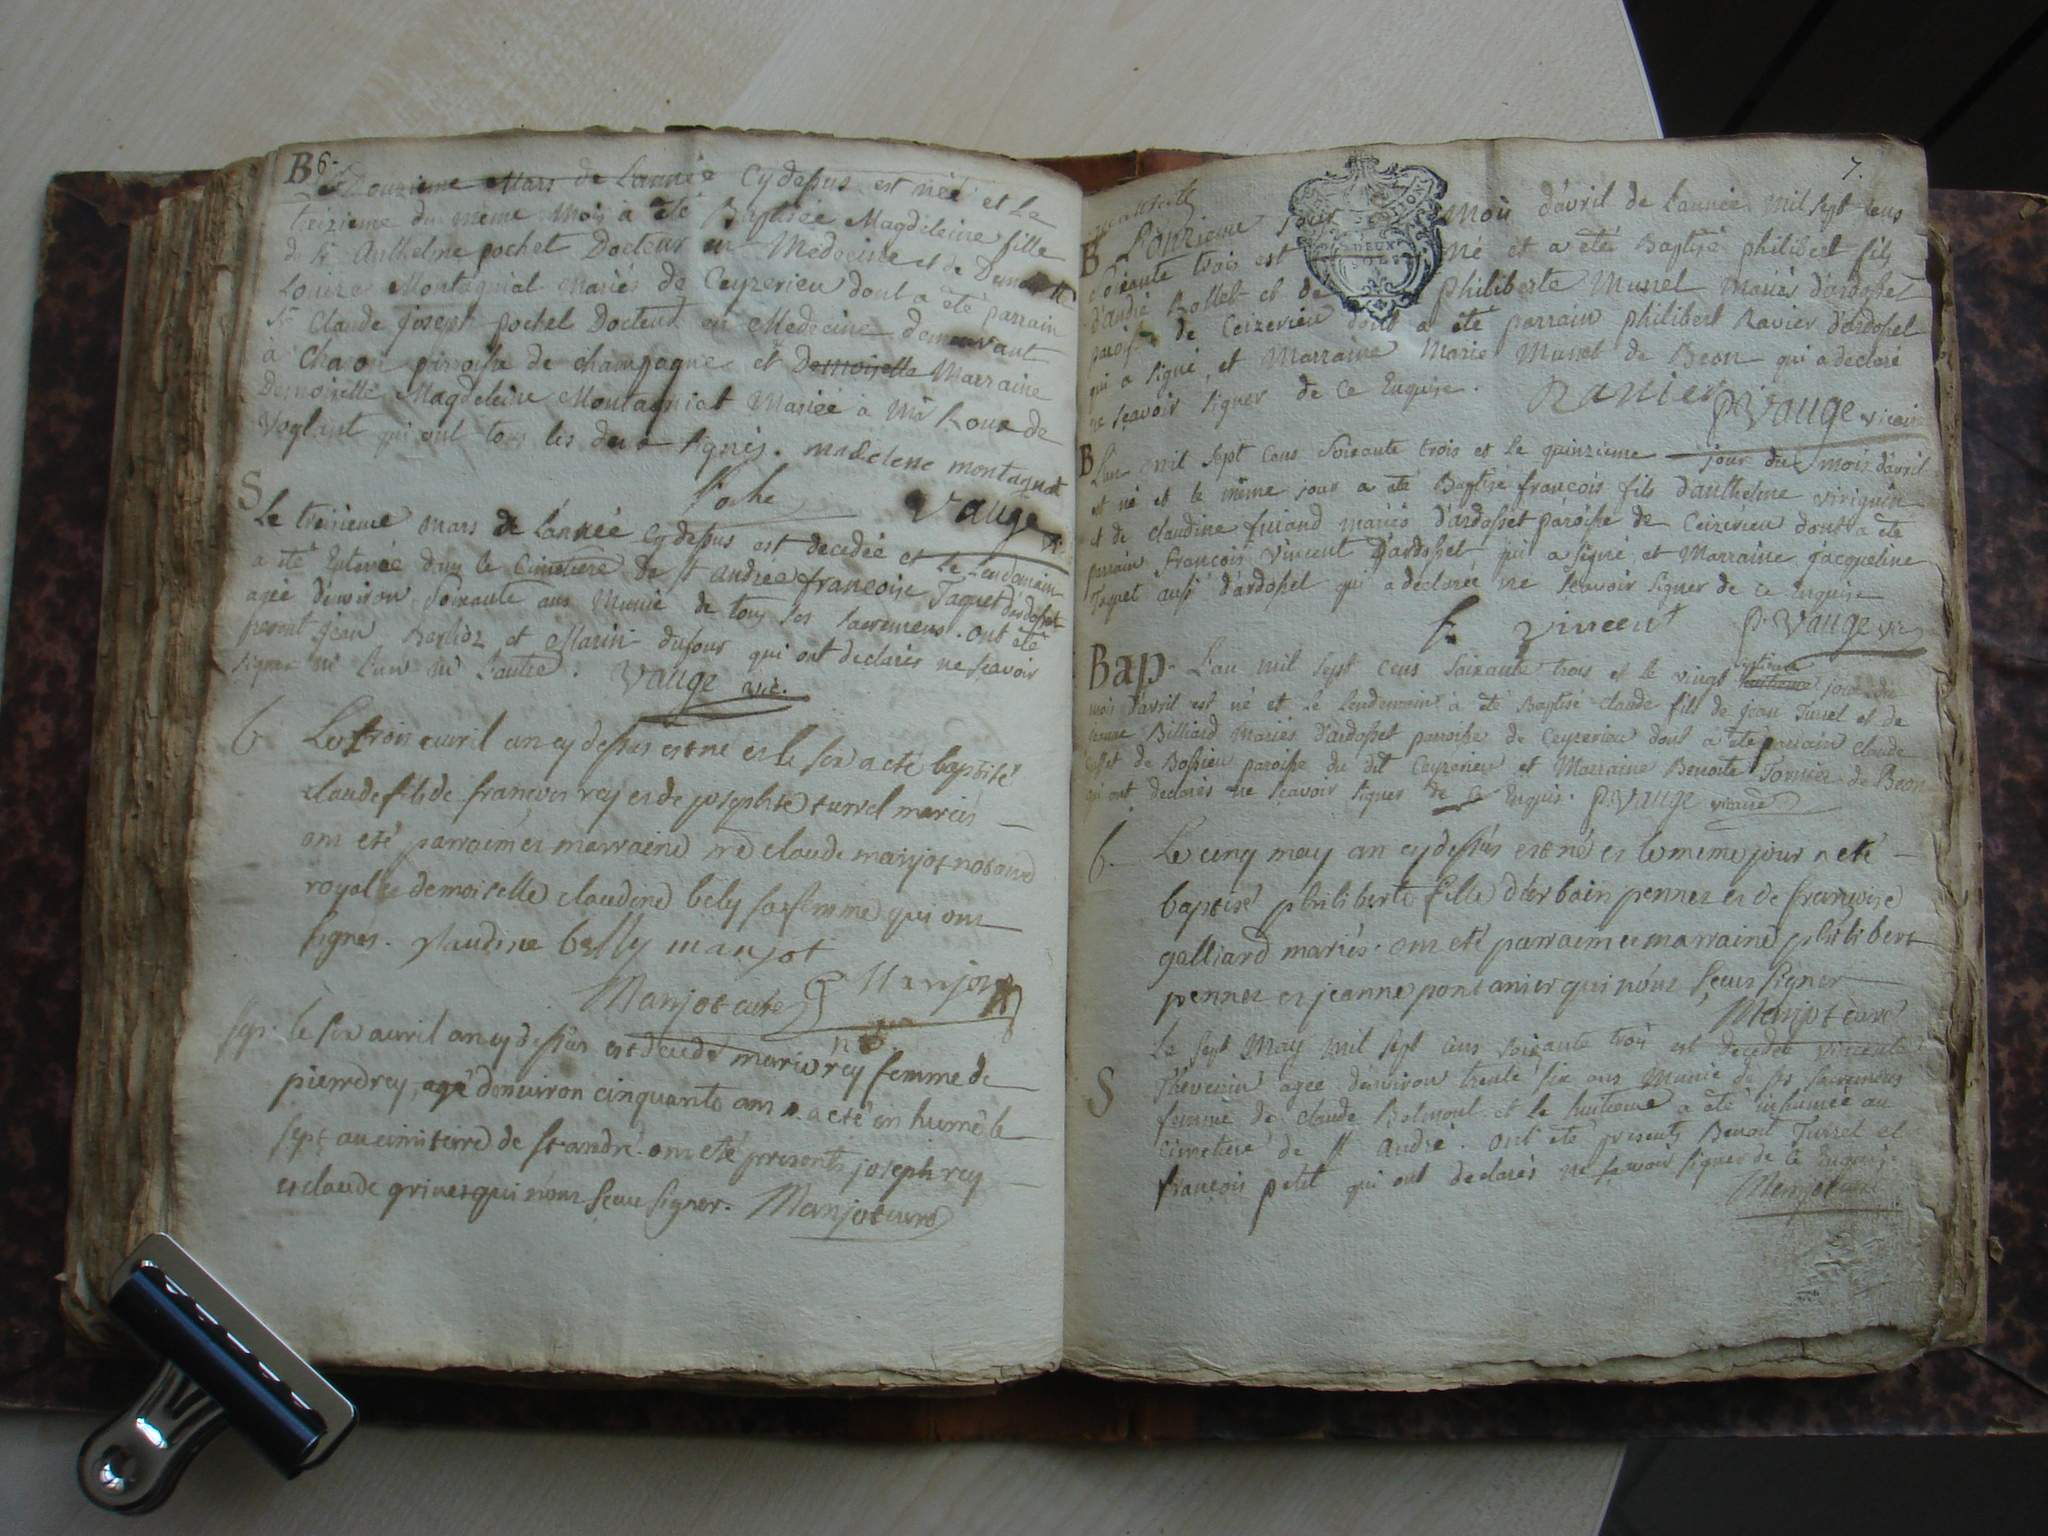 B 6.
Le Douzieme Mars de L'année Cydessus est née et Le
treizieme du même Mois a été Baptisée Magdeleine fille
de Sr. Anthelme pochet Docteur en Medecine et de Demoiselle
Louize Montagniat mariés de Ceyzerieu dont a été parrain
Sr Claude Joseph pochet Docteur en Medecine demeurant
à Chaon parroisse de champagne et Demoiselle Marraine
Demoiselle Magdeleine Montagniat Mariée à Mr Roux de
Voglant qui ont tous les deux signés. madelene montagnat
poche Vauge
S
Le treisieme mars de l'année cydessus est decedée et Le Lendemain
a été Enterrée dans le Cimetiere de st andrée francoise Jaquet d'ardosset
agée d'environ Soixante ans Munie de tous ses sacremens. ont été
present Jean Berlioz et Marin dufour qui ont declarés ne scavoir
signer ni L'un ni L'autre. Vauge vic.
b Le trois avril an cy dessus est né et le six a eté baptisé
claude fils de francois rey et de josephte turrel mariés
ont eté parrain et marraine me claude manjot notaire
royal et demoiselle claudine bely sa femme qui ont
signes. glaudine belly manjot
Manjot curé Manjot
sep. le six avril an cy dessus est decedé marie rey femme de
pierre rey, agé denviron cinquante ans a eté in humé le
sept au cimiterre de st andré. ont eté presents joseph rey
et claude grinet qui n'ont sceu signer. Manjot curé
7.
B L'onzieme jour mois d'avril de l'année mil sept cens
soixante trois est né et a eté Baptisé philibert fils
d'andré Rollet et de philiberte Munet mariés d'ardosset
paroisse de Ceizerieu dont a été parrain philibert Ravier d'ardosset
qui a signé, et Marraine Marie Munet de Beon qui a declaré
ne scavoir signer de ce Enquise. Ravier P. Vauge vicaire
B L'an mil sept cens soixante trois et le quinzieme jour du mois d'avril
est né et le même jour a été Baptisé françois fils d'anthelme viriguin
et de claudine mariés d'ardosset paroisse de Ceizerieu dont a été
parrain françois Vincent d'ardosset qui a signé et Marraine Jacqueline
Jaquet aussi d'ardosset qui a declarée ne scavoir signer de ce Enquise
f. vincent P. Vauge vic
Bap. L'an mil sept cens soixante trois et le vingt jour du
mois d'avril est né et Le Lendemain a été Baptisé claude fils de jean Turrel et de
Billiard Mariés d'ardosset parroisse de Ceyzerieu dont a été parrain claude
de Bossieu paroisse du dit Ceyzerieu et Marraine Benoite Tornier de Beon
qui ont declarés ne scavoir signer de ce Enquis. P. Vauge vicaire
b. Le cinq may an cy dessus est né et le meme jour a eté
baptisé philiberte fille d'urbain pennet et de françoise
galliard mariés. ont eté parrain et marraine philibert
pennet et jeanne pontanier qui n'ont sceu signer
Manjot curé
S
Le sept May mil sept cens soixante trois est decedée vincente
Thevenin agée d'environ trente six ans Munie de ses sacremens
femme de claude Bolmont et le huitieme a été inhumée au
Cimetiere de st André. ont été présents Benoit Turrel et
françois petit qui ont declarés ne scavoir signer de ce Enquis.
Manjot curé